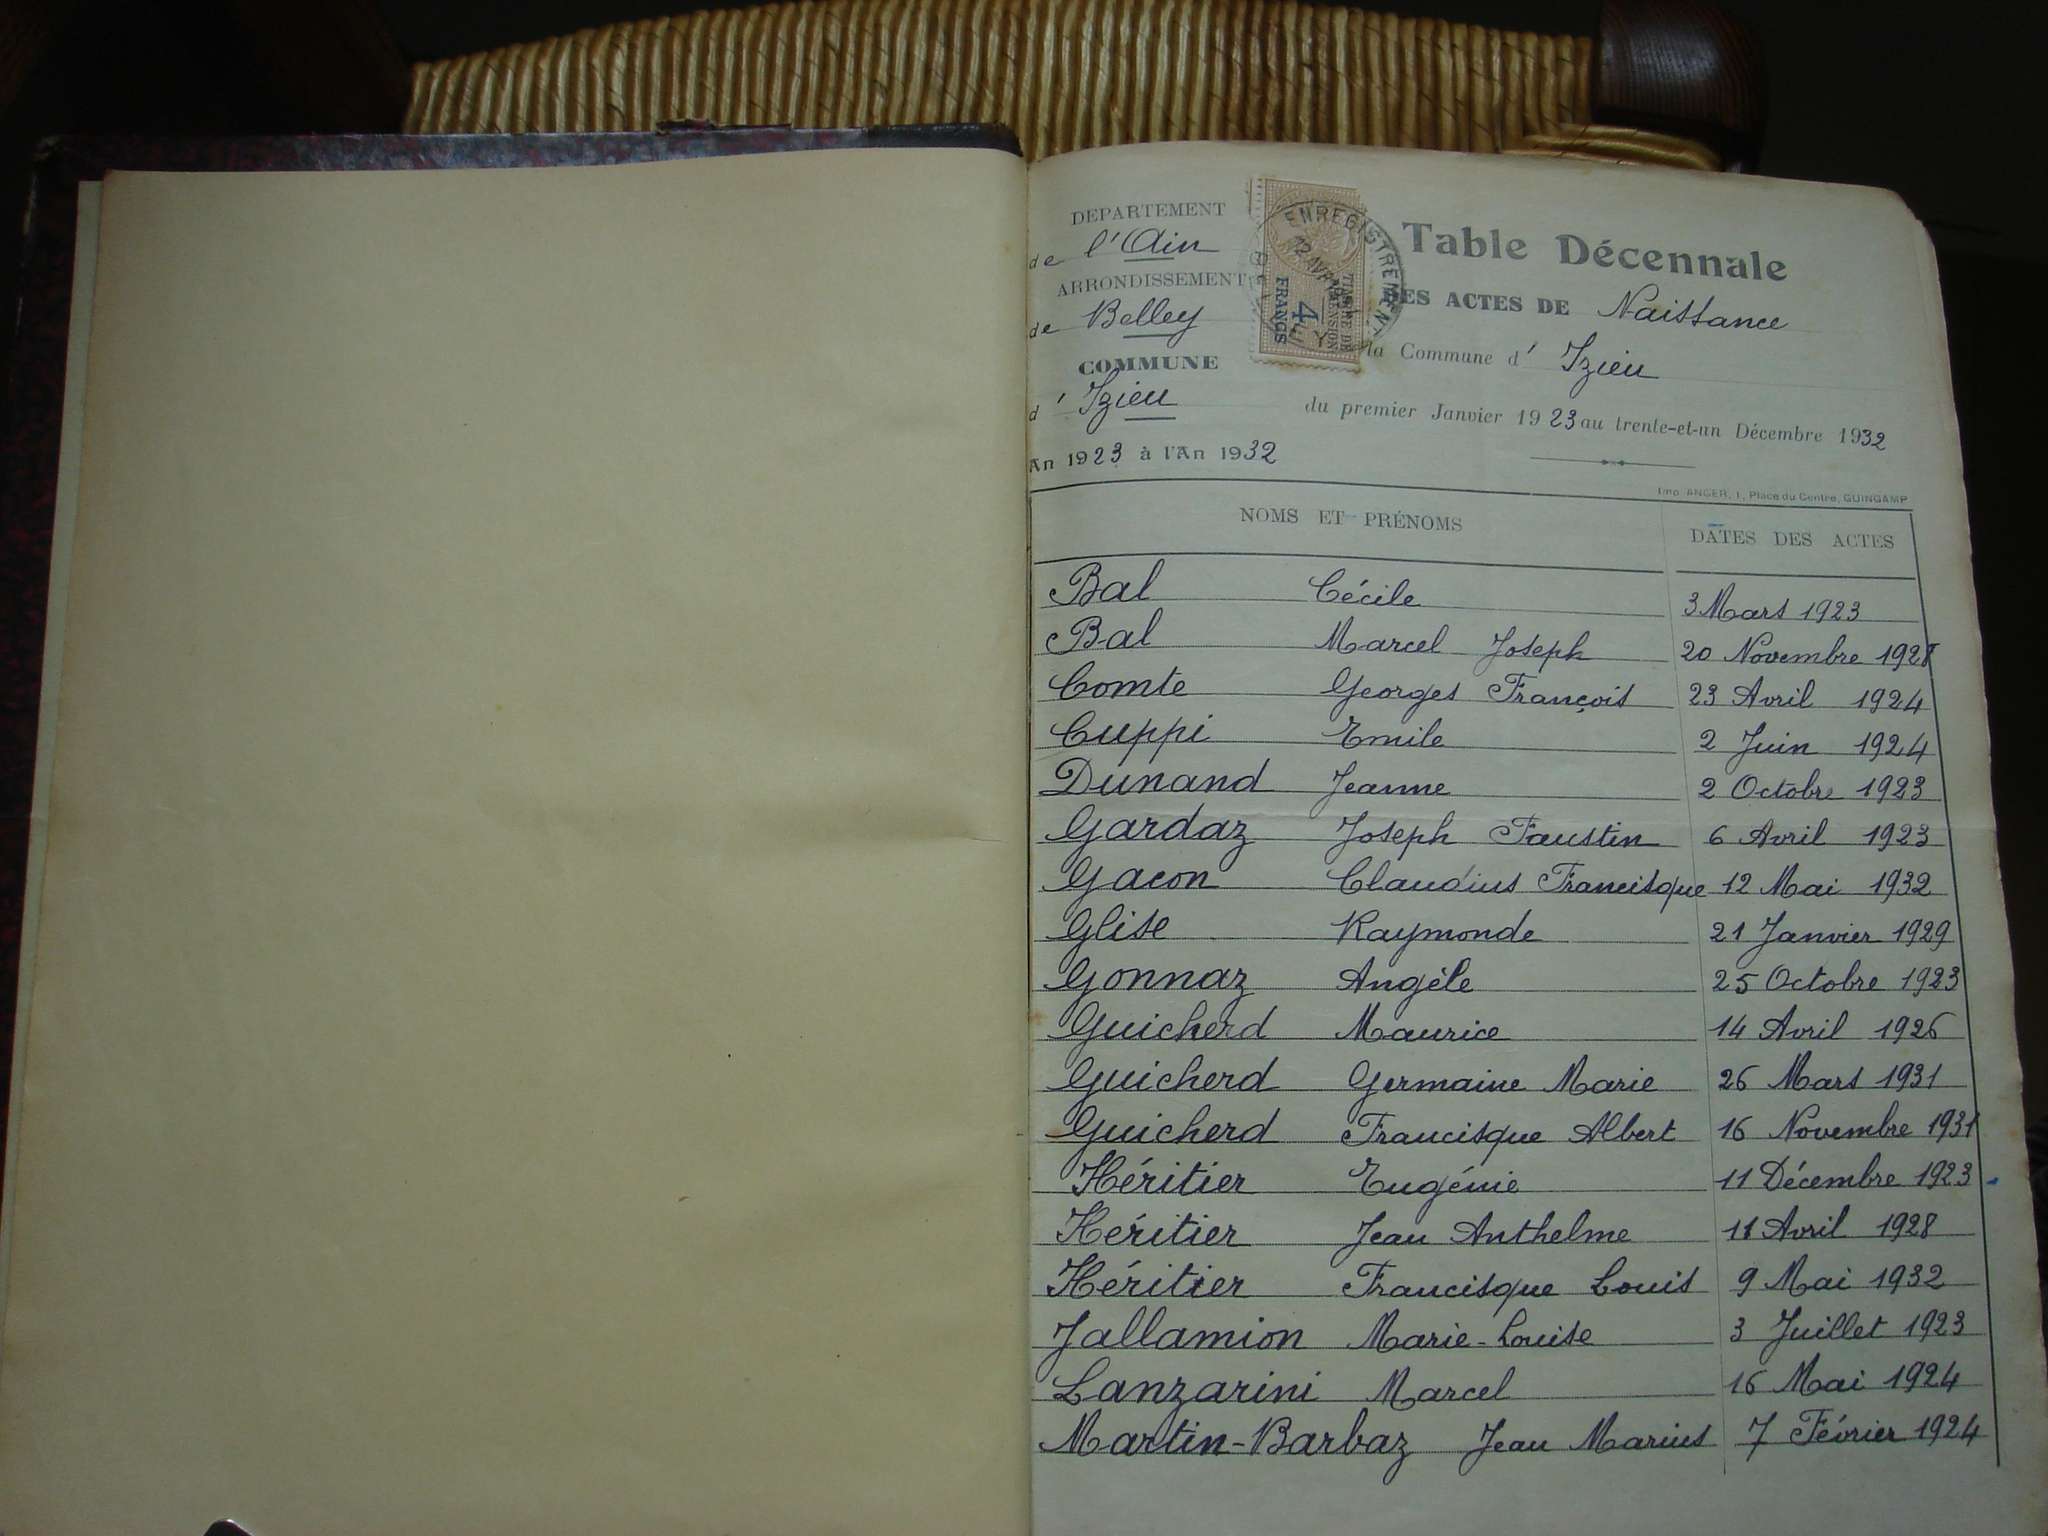 DEPARTEMENT
de l'Ain
ARRONDISSEMENT
de Belley
COMMUNE
d' Izieu
An 1923 à l'An 1932
ENREGISTREMENT
12 AVR
TIMBRE DE DIMENSION
4 FRANCS
Table Décennale
DES ACTES DE Naissance
la Commune d' Izieu
du premier Janvier 1923 au trente-et-un Décembre 1932
Imp. ANGER, 1, Place du Centre, GUINGAMP
NOMS ET PRÉNOMS DATES DES ACTES
Bal Cécile 3 Mars 1923
Bal Marcel Joseph 20 Novembre 1928
Comte Georges François 23 Avril 1924
Cuppi Emile 2 Juin 1924
Dunand Jeanne 2 Octobre 1923
Gardaz Joseph Faustin 6 Avril 1923
Gacon Claudius Francisque 12 Mai 1932
Glise Raymonde 21 Janvier 1929
Gonnaz Angèle 25 Octobre 1923
Guicherd Maurice 14 Avril 1926
Guicherd Germaine Marie 26 Mars 1931
Guicherd Francisque Albert 16 Novembre 1931
Héritier Eugénie 11 Décembre 1923
Héritier Jean Anthelme 11 Avril 1928
Héritier Francisque Louis 9 Mai 1932
Jallamion Marie-Louise 3 Juillet 1923
Lanzarini Marcel 16 Mai 1924
Martin-Barbaz Jean Marius 7 Février 1924